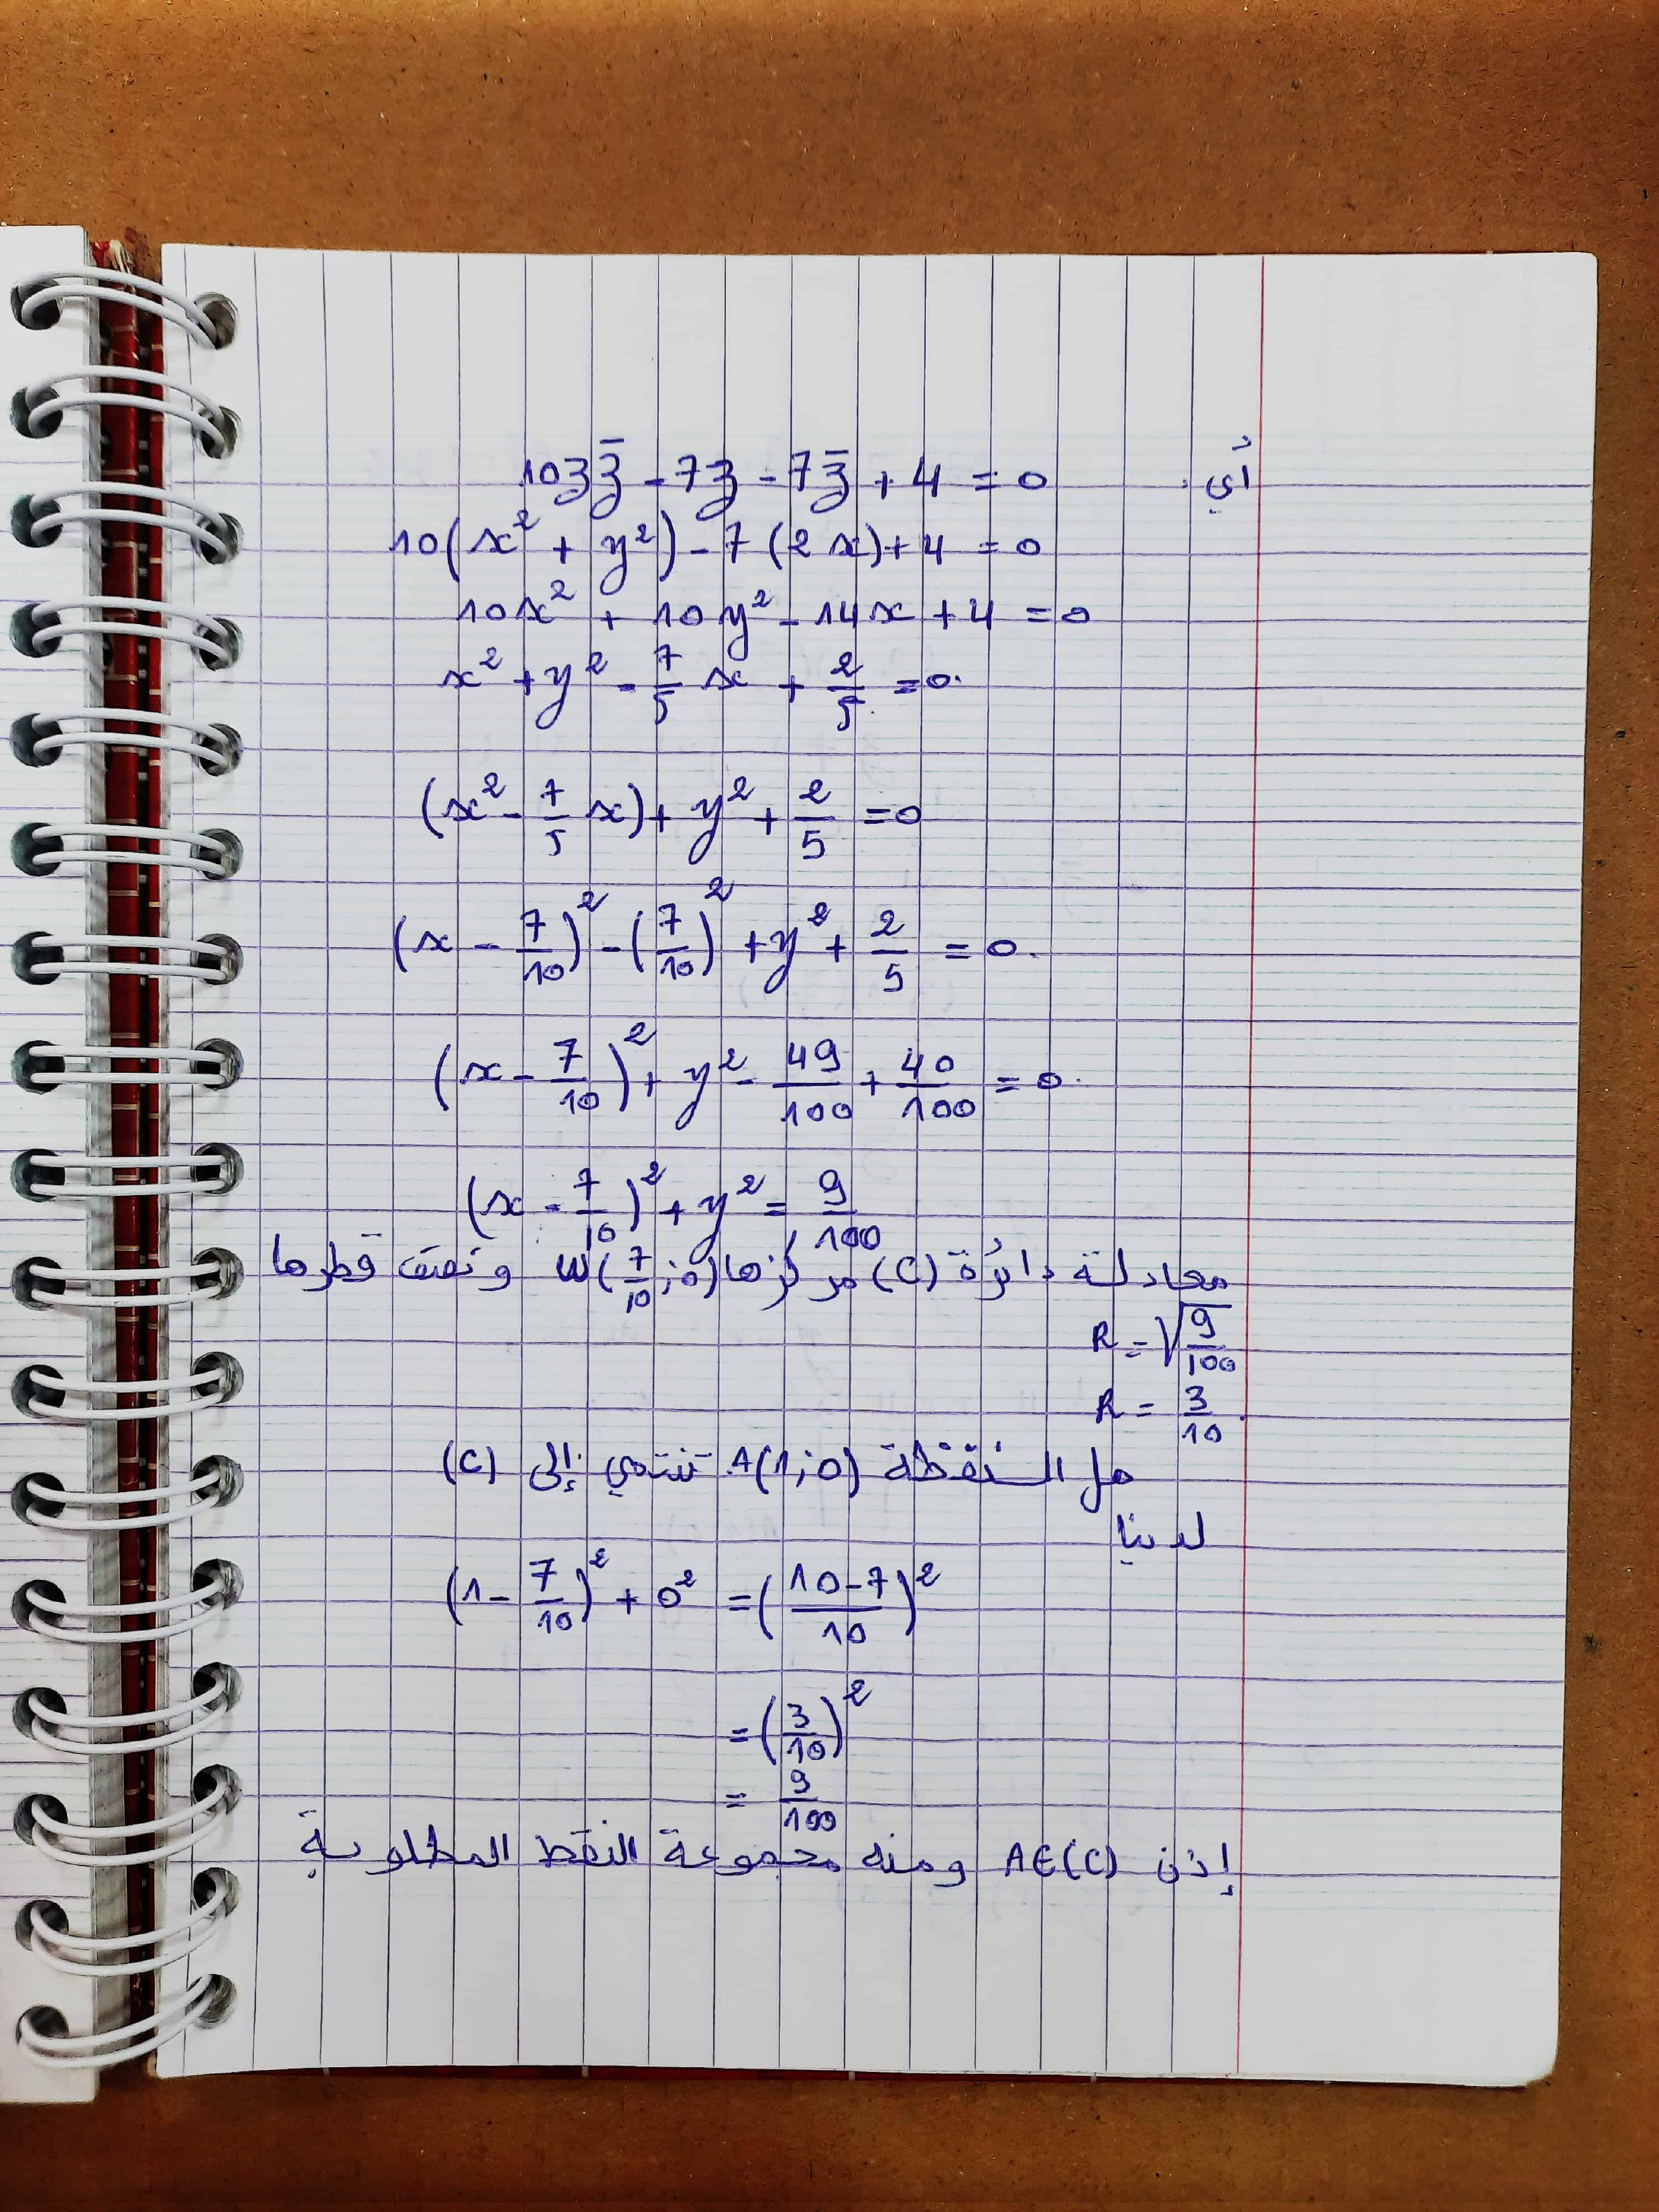 أي 10z z̄ - 7z - 7z̄ + 4 = 0
10(x² + y²) - 7(2x) + 4 = 0
10x² + 10y² - 14x + 4 = 0
x² + y² - 7/5 x + 2/5 = 0.
(x² - 7/5 x) + y² + 2/5 = 0
(x - 7/10)² - (7/10)² + y² + 2/5 = 0.
(x - 7/10)² + y² - 49/100 + 40/100 = 0.
(x - 7/10)² + y² = 9/100
معادلة دائرة (C) مركزها W(7/10 ; 0) ونصف قطرها
R = √(9/100)
R = 3/10.
هل النقطة A(1;0) تنتمي إلى (C)
لدينا
(1 - 7/10)² + 0² = ((10-7)/10)²
= (3/10)²
= 9/100
إذن A∈(C) ومنه مجموعة النقط المطلوبة